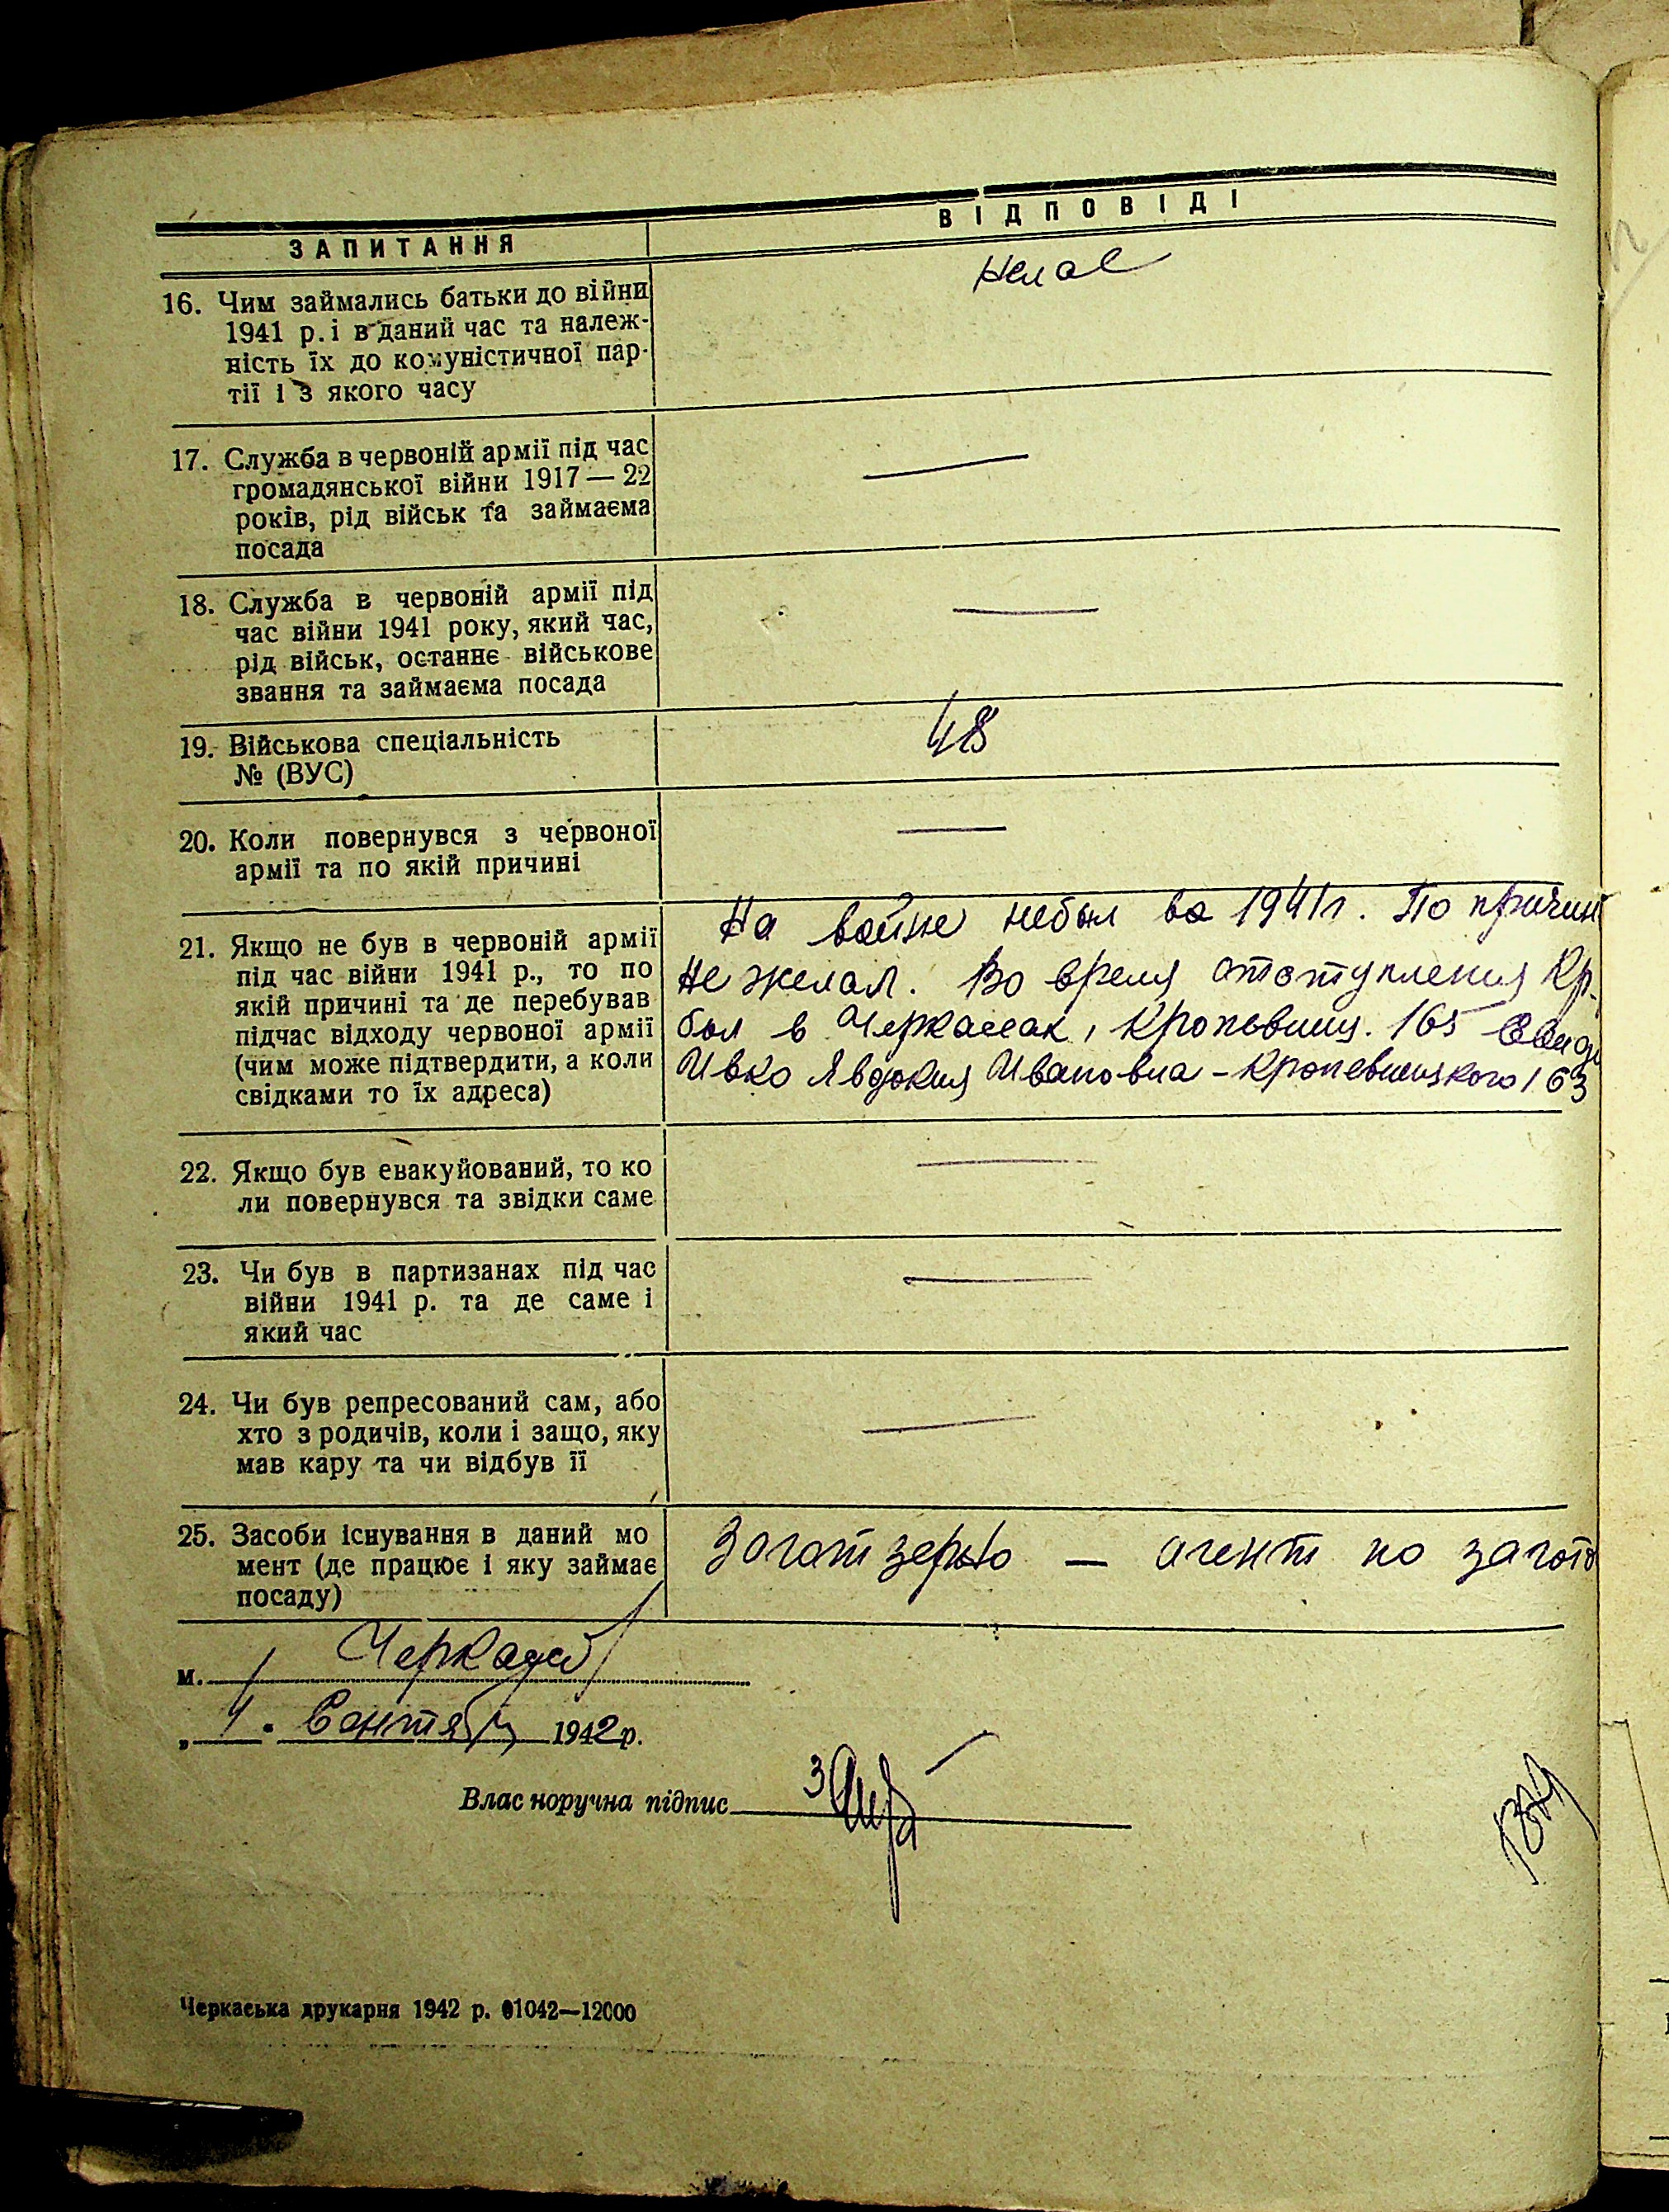 ЗАПИТАННЯ
ВІДПОВІДІ
16. Чим займались батьки до війни
1941 р. і в даний час та належ-
ність їх до комуністичної пар-
тії і з якого часу
Немає
17. Служба в червоній армії під час
громадянської війни 1917—22
років, рід військ та займаєма
посада
—
18. Служба в червоній армії під
час війни 1941 року, який час,
рід військ, останнє військове
звання та займаєма посада
—
19. Військова спеціальність
№ (ВУС)
48
20. Коли повернувся з червоної
армії та по якій причині
—
21. Якщо не був в червоній армії
під час війни 1941 р., то по
якій причині та де перебував
підчас відходу червоної армії
(чим може підтвердити, а коли
свідками то їх адреса)
На войне небыл во 1941г. По причин
не желал. Во время отступления Кр.
был в Черкассах, Кропевниц. 165
Ивко Явдокия Ивановна - Кропевницкого 163
22. Якщо був евакуйований, то ко
ли повернувся та звідки саме
—
23. Чи був в партизанах під час
війни 1941 р. та де саме і
який час
—
24. Чи був репресований сам, або
хто з родичів, коли і защо, яку
мав кару та чи відбув її
—
25. Засоби існування в даний мо
мент (де працює і яку займає
посаду)
Заготзерно — агент по загото
м. Черкассы
„ 4. Сентяб 1942р.
Власноручна підпис
Черкаська друкарня 1942 р. 01042—12000